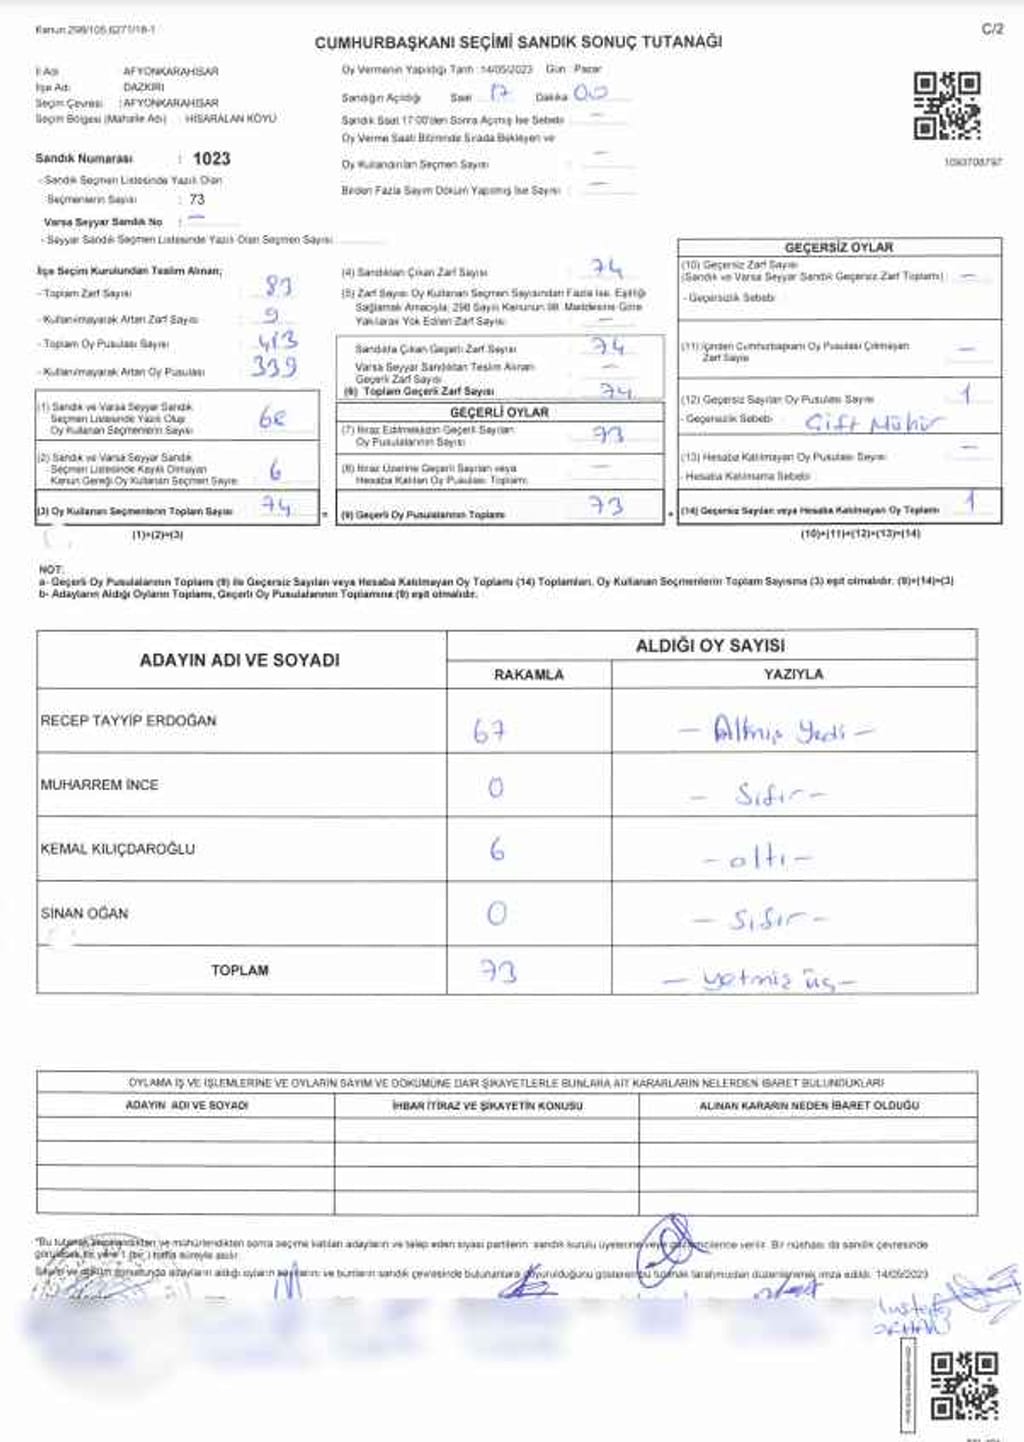 Kanun:298/105,6271/18-1
C/2
CUMHURBAŞKANI SEÇİMİ SANDIK SONUÇ TUTANAĞI
İl Adı AFYONKARAHİSAR
İlçe Adı: DAZKIRI
Seçim Çevresi : AFYONKARAHİSAR
Seçim Bölgesi (Mahalle Adı) : HİSARALAN KÖYÜ
Sandık Numarası : 1023
- Sandık Seçmen Listesinde Yazılı Olan
Seçmenlerin Sayısı : 73
Varsa Seyyar Sandık No : —
- Seyyar Sandık Seçmen Listesinde Yazılı Olan Seçmen Sayısı
Oy Vermenin Yapıldığı Tarih : 14/05/2023 Gün : Pazar
Sandığın Açıldığı Saat 17 Dakika 00
Sandık Saat 17:00'den Sonra Açılmış İse Sebebi —
Oy Verme Saati Bitiminde Sırada Bekleyen ve
Oy Kullandırılan Seçmen Sayısı : —
Birden Fazla Sayım Döküm Yapılmış İse Sayısı : —
1093708797
İlçe Seçim Kurulundan Teslim Alınan;
- Toplam Zarf Sayısı 83
- Kullanılmayarak Artan Zarf Sayısı 9
- Toplam Oy Pusulası Sayısı 413
- Kullanılmayarak Artan Oy Pusulası 339
(1) Sandık ve Varsa Seyyar Sandık
Seçmen Listesinde Yazılı Olup
Oy Kullanan Seçmenlerin Sayısı
(2) Sandık ve Varsa Seyyar Sandık
Seçmen Listesinde Kayıtlı Olmayan
Kanun Gereği Oy Kullanan Seçmen Sayısı 6
(3) Oy Kullanan Seçmenlerin Toplam Sayısı 74
(1)+(2)=(3)
(4) Sandıktan Çıkan Zarf Sayısı 74
(5) Zarf Sayısı Oy Kullanan Seçmen Sayısından Fazla İse, Eşitliği
Sağlamak Amacıyla, 298 Sayılı Kanunun 98. Maddesine Göre
Yakılarak Yok Edilen Zarf Sayısı —
Sandıkta Çıkan Geçerli Zarf Sayısı 74
Varsa Seyyar Sandıktan Teslim Alınan
Geçerli Zarf Sayısı —
(6) Toplam Geçerli Zarf Sayısı 74
GEÇERLİ OYLAR
(7) İtiraz Edilmeksizin Geçerli Sayılan
Oy Pusulalarının Sayısı 73
(8) İtiraz Üzerine Geçerli Sayılan veya
Hesaba Katılan Oy Pusulası Toplamı —
(9) Geçerli Oy Pusulalarının Toplamı 73
GEÇERSİZ OYLAR
(10) Geçersiz Zarf Sayısı
(Sandık ve Varsa Seyyar Sandık Geçersiz Zarf Toplamı) —
- Geçersizlik Sebebi
(11) İçinden Cumhurbaşkanı Oy Pusulası Çıkmayan
Zarf Sayısı —
(12) Geçersiz Sayılan Oy Pusulası Sayısı 1
- Geçersizlik Sebebi Çift Mühür
(13) Hesaba Katılmayan Oy Pusulası Sayısı —
- Hesaba Katılmama Sebebi
(14) Geçersiz Sayılan veya Hesaba Katılmayan Oy Toplamı 1
(10)+(11)+(12)+(13)=(14)
NOT:
a- Geçerli Oy Pusulalarının Toplamı (9) ile Geçersiz Sayılan veya Hesaba Katılmayan Oy Toplamı (14) Toplamları, Oy Kullanan Seçmenlerin Toplam Sayısına (3) eşit olmalıdır. (9)+(14)=(3)
b- Adayların Aldığı Oyların Toplamı, Geçerli Oy Pusulalarının Toplamına (9) eşit olmalıdır.
ADAYIN ADI VE SOYADI
ALDIĞI OY SAYISI
RAKAMLA YAZIYLA
RECEP TAYYİP ERDOĞAN 67 — Altmış Yedi —
MUHARREM İNCE 0 — Sıfır —
KEMAL KILIÇDAROĞLU 6 — altı —
SİNAN OĞAN 0 — Sıfır —
TOPLAM 73 — yetmiş üç —
OYLAMA İŞ VE İŞLEMLERİNE VE OYLARIN SAYIM VE DÖKÜMÜNE DAİR ŞİKAYETLERLE BUNLARA AİT KARARLARIN NELERDEN İBARET BULUNDUKLARI
ADAYIN ADI VE SOYADI İHBAR İTİRAZ VE ŞİKAYETİN KONUSU ALINAN KARARIN NEDEN İBARET OLDUĞU
*Bu tutanak imzalandıktan ve mühürlendikten sonra seçime katılan adayların ve talep eden siyasi partilerin sandık kurulu üyelerine veya gözlemcilerine verilir. Bir nüshası da sandık çevresinde
görülebilir bir yere 1 (bir) hafta süreyle asılır.
adayların aldığı oyların sayılarını ve bunların sandık çevresinde bulunanlara duyurulduğunu gösteren bu tutanak tarafımızdan düzenlenerek imza edildi. 14/05/2023
Mustafa
ORHAN